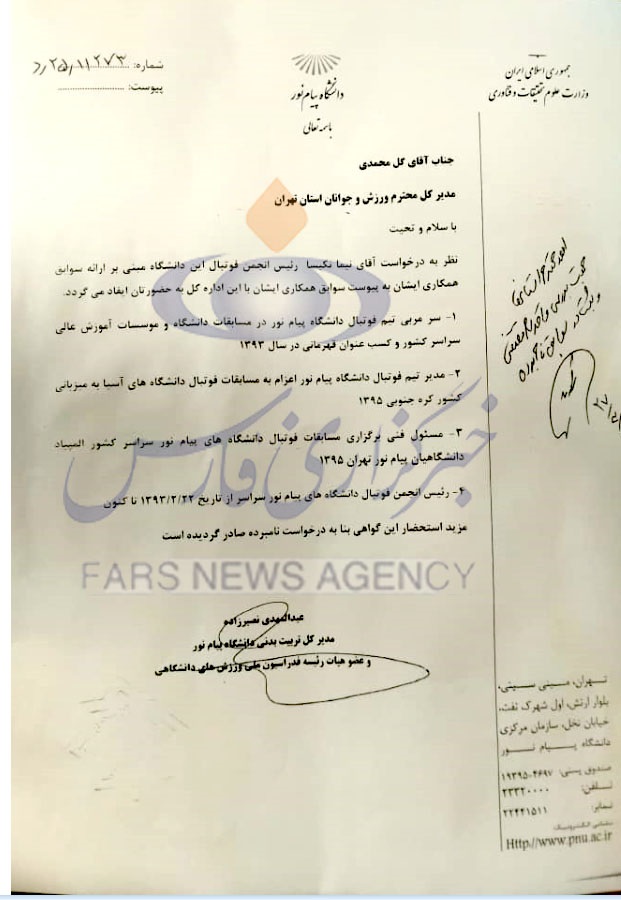 جمهوری اسلامی ایران
وزارت علوم تحقیقات و فناوری
دانشگاه پیام نور
باسمه تعالی
شماره:
پیوست:
جناب آقای گل محمدی
مدیر کل محترم ورزش و جوانان استان تهران
با سلام و تحیت
نظر به درخواست آقای نیما نکیسا رئیس انجمن فوتبال این دانشگاه مبنی بر ارائه سوابق
همکاری ایشان به پیوست سوابق همکاری ایشان با این اداره کل به حضورتان ایفاد می گردد.
۱- سر مربی تیم فوتبال دانشگاه پیام نور در مسابقات دانشگاه و موسسات آموزش عالی
سراسر کشور و کسب عنوان قهرمانی در سال ۱۳۹۳
۲- مدیر تیم فوتبال دانشگاه پیام نور اعزام به مسابقات فوتبال دانشگاه های آسیا به میزبانی
کشور کره جنوبی ۱۳۹۵
۳- مسئول فنی برگزاری مسابقات فوتبال دانشگاه های پیام نور سراسر کشور المپیاد
دانشگاهیان پیام نور تهران ۱۳۹۵
۴- رئیس انجمن فوتبال دانشگاه های پیام نور سراسر از تاریخ ۱۳۹۳/۲/۲۲ تا کنون
مزید استحضار این گواهی بنا به درخواست نامبرده صادر گردیده است
خبرگزاری فارس
FARS NEWS AGENCY
عبدالمهدی نصیرزاده
مدیر کل تربیت بدنی دانشگاه پیام نور
و عضو هیات رئیسه فدراسیون ملی ورزش های دانشگاهی
تهران، مینی سیتی،
بلوار ارتش، اول شهرک نفت،
خیابان نخل، سازمان مرکزی
دانشگاه پیام نور
صندوق پستی: ۴۶۹۷-۱۹۳۹۵
تلفن: ۲۳۳۲۰۰۰۰
نمابر: ۲۲۴۴۱۵۱۱
نشانی الکترونیک
Http://www.pnu.ac.ir